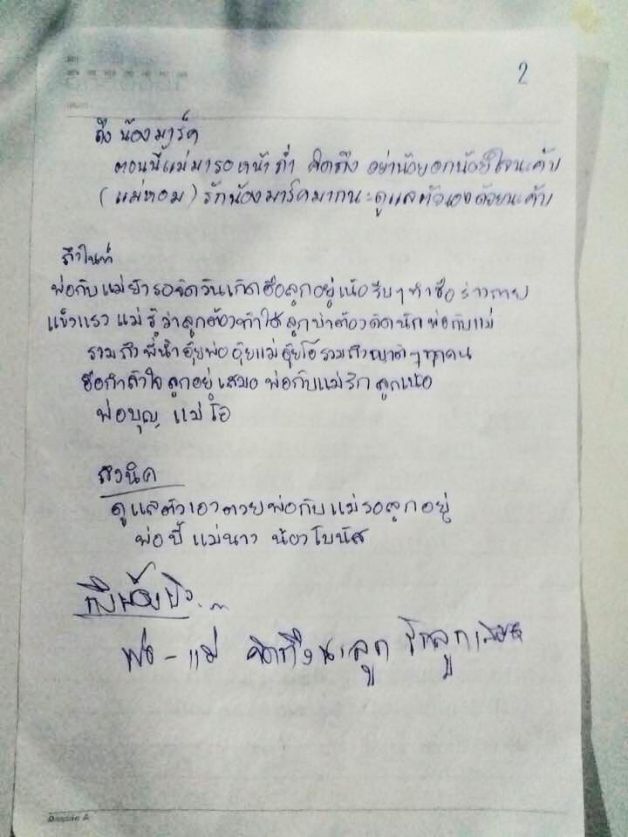 2
ถึง น้องมาร์ค
ตอนนี้แม่มารอหน้าถ้ำ คิดถึง อย่าน้อยอกน้อยใจนะค้าบ
(แม่หอม) รักน้องมาร์คมากนะ ดูแลตัวเองด้วยนะค้าบ
ถึงไนท์
พ่อกับแม่ยังรอจัดวันเกิดฮือลูกอยู่เน้อ รีบๆ ร่างกาย
แข็งแรง แม่รู้ว่าลูกต้องทำได้ ลูกบ่าต้องคิดนัก พ่อกับแม่
รวมถึงพี่น้ำ อุ๊ยพ่อ อุ๊ยแม่ รวมถึงญาติๆ ทุกคน
ฮือกำลังใจลูกอยู่เสมอ พ่อกับแม่รักลูกเน้อ
พ่อบุญ แม่
ถึงนิค
ดูแลตัวเอง พ่อกับแม่รอลูกอยู่
พ่อ แม่นาง น้องโบนัส
ถึงน้อง
พ่อ - แม่ คิดถึงนะลูก รักลูกเสมอ